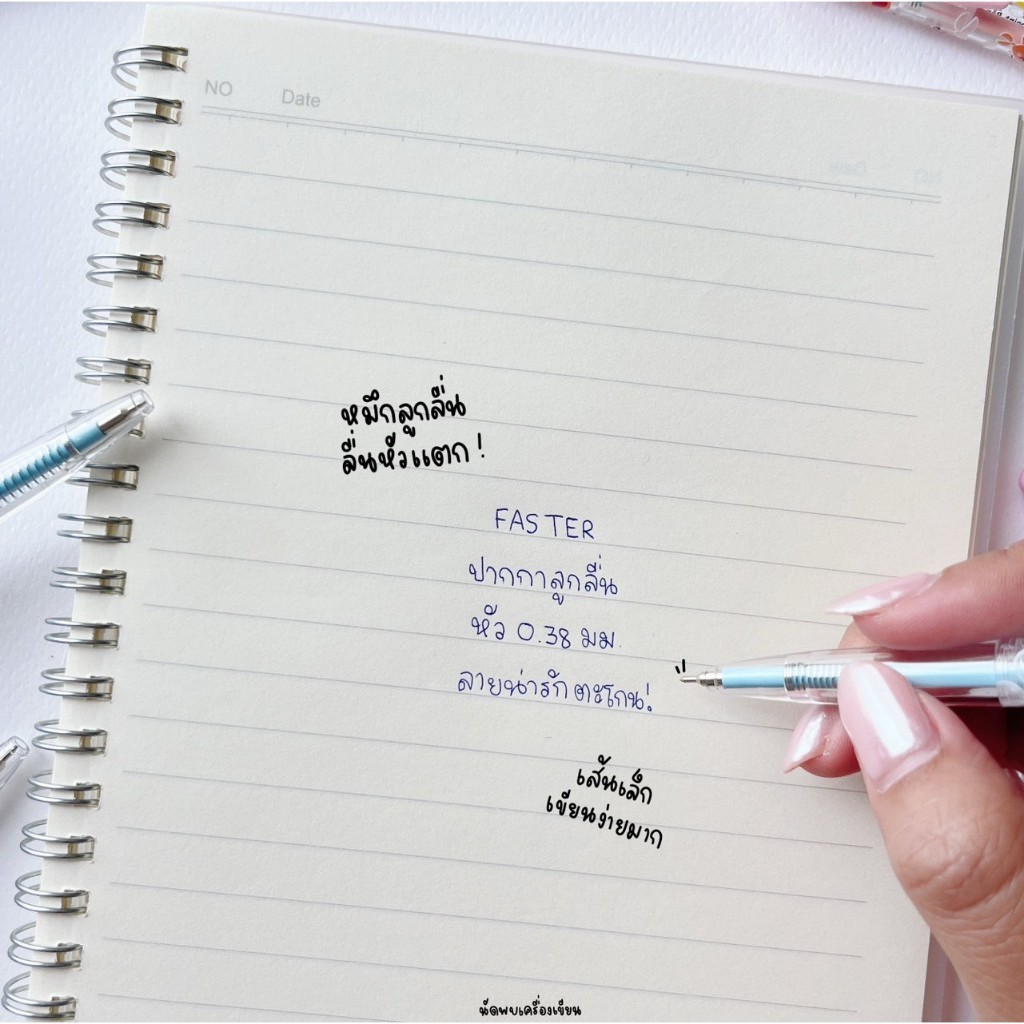 NO Date
หมึกลูกลื่น
ลื่นหัวแตก!
FASTER
ปากกาลูกลื่น
หัว 0.38 มม.
ลายน่ารักตะโกน!
เส้นเล็ก
เขียนง่ายมาก
นัดพบเครื่องเขียน